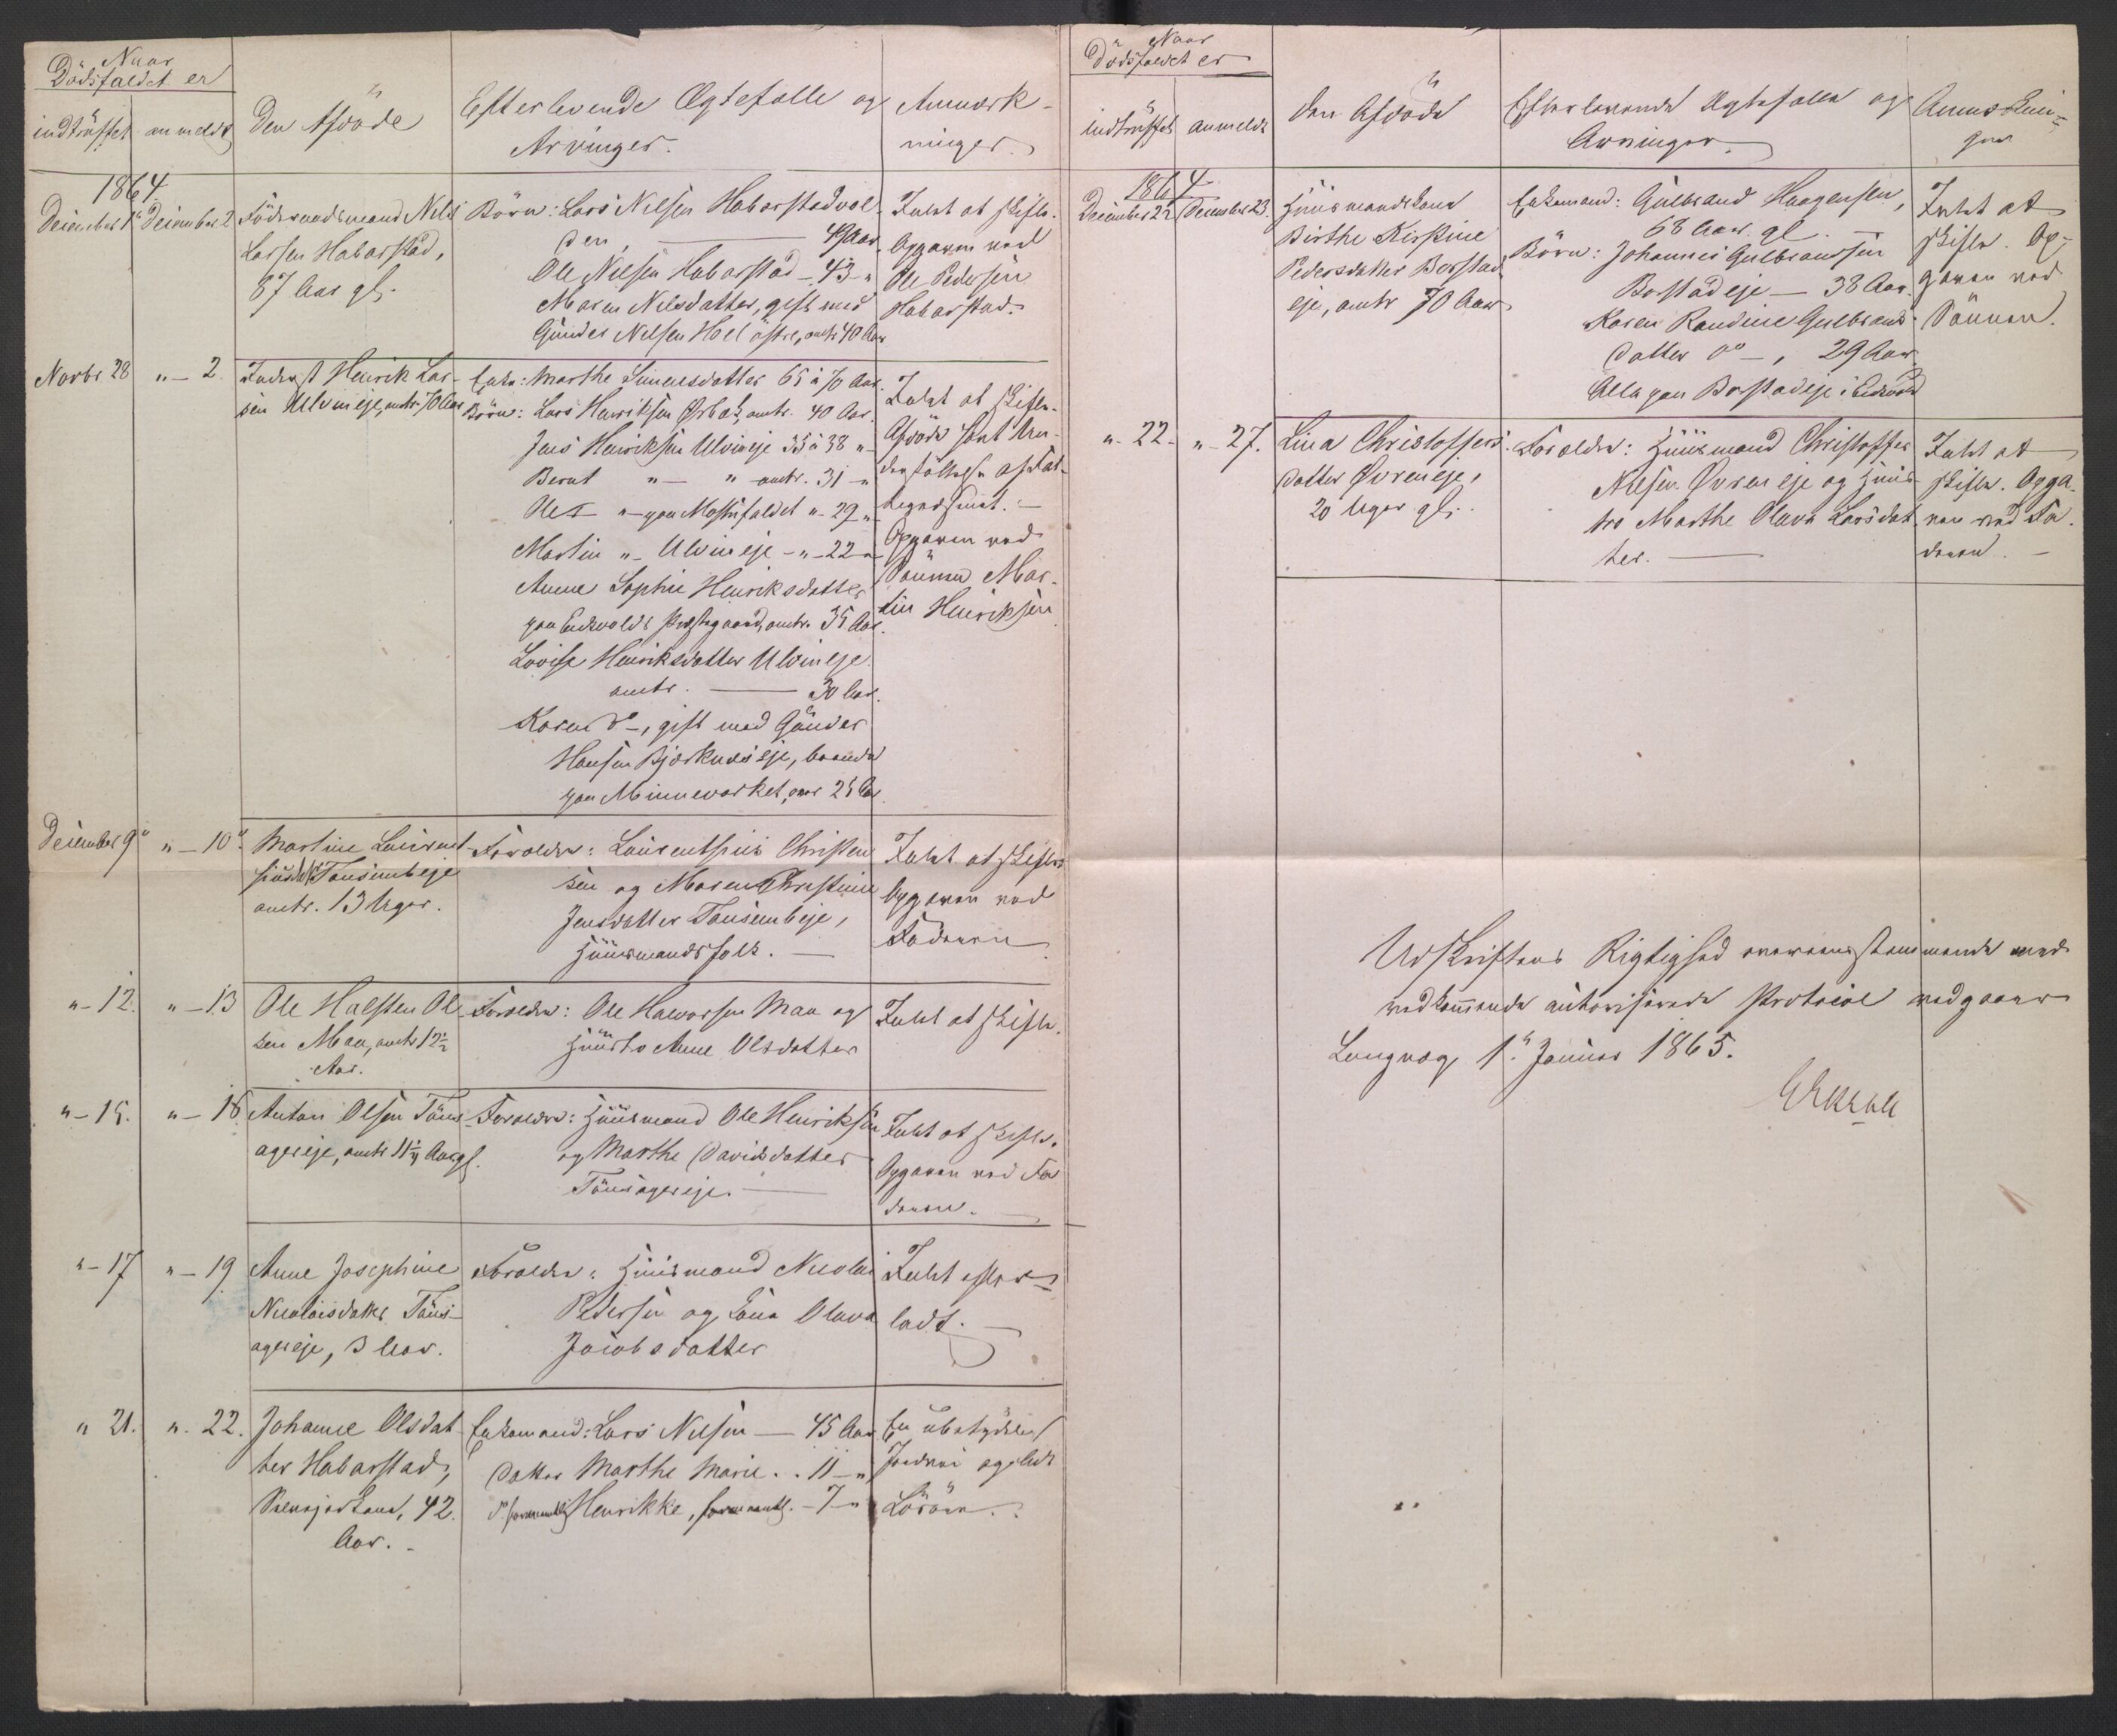 Naar
Dödsfaldet er
indtruffet anmeldt
Den Afdöde
Efterlevende Ægtefælle og
Arvinger.
Anmærk-
ninger.
1864.
December 1. December 2
Föderaadsmand Nils
Larsen Habarstad,
87 Aar gl.
Börn: Lars Nilsen Habarstadval-
den, 49 Aar
Ole Nilsen Habarstad 43 "
Maren Nilsdatter, gift med
Gunder Nilsen Hoel östre, omtr 40 Aar
Intet at skifte.
Opgaven ved
Ole Pedersen
Habarstad.
Novbr 28 " 2.
Inderst Henrik Lar-
sen Ulvineje, omtr. 70 Aar
Enke: Marthe Simensdatter 65 à 70 Aar.
Börn: Lars Henriksen Ørbæk, omtr. 40 Aar.
Jens Henriksen Ulvineje 35 à 38 "
Bernt " — " omtr. 31 "
" paa Mostufaldet " 29 "
Martin " Ulvineje " 22 "
Anne Sophie Henriksdatter
paa Eidsvolds Præstegaard, omtr. 35 Aar.
Lovise Henriksdatter Ulvineje
omtr. — 30 Aar.
Karen do, gift med Gunder
Hansen Bjørknæseje, boende
paa Minneværket, omtr 25 Aar.
Intet at skifte.
Afdöde havt Un-
derstöttelse af Fat-
Opgaven ved
Sönnen Mar-
tin Henriksen
December 9 " — 10.
Martine Laurent-
siusdtr Tönsembeje
omtr. 13 Uger.
Forældre: Laurentsius Christen
sen og Maren Christine
Jensdatter Tönsembeje,
Huusmandsfolk. —
Intet at skifte
Opgaven ved
Faderen
" — 12. " — 13
Ole Halsten Ol-
sen Maa, omtr 1 1/2
Aar.
Forældre: Ole Halvorsen Maa og
Hustro Anne Olsdatter
Intet at skifte.
" — 15. " — 16
Anton Olsen Töns-
agereje, omtr 1 1/4 Aar gl.
Forældre: Huusmand Ole Henriksen
og Marthe Davidsdatter
Tönsagereje. —
Intet at skifte.
Opgaven ved Fa-
deren.
" — 17 " — 19.
Anne Josephine
Nicolaisdatter Töns-
agereje, 3 Uger.
Forældre: Huusmand Nicolai
Pedersen og Lina Olava
Jacobsdatter
Intet efter-
ladt.
" 21. " 22.
Johanne Olsdat-
ter Habarstad,
42.
Aar.
Enkemand: Lars Nilsen — 45 Aar
Datter Marthe Marie .. 11 — "
Henrikke, — 7 "
En ubetydelig
Jordvei og lidt
Lösöre.
Naar
Dödsfaldet er
indtruffet anmeldt
Den Afdöde
Efterlevende Ægtefælle og
Arvinger.
Anmærknin-
ger
1864
December 22 December 23.
Huusmandskone
Birthe Kirstine
Pedersdatter Borstad-
eje, omtr 70 Aar
Enkemand: Gulbrand Haagensen,
68 Aar gl.
Börn: Johannes Gulbrandsen
Borstadeje — 38 Aar.
Karen Randine Gulbrands-
datter do —, 29 Aar
Alle paa Borstadeje i Eidsvold
Intet at
skifte. Op-
gaven ved
Sönnen.
" 22. " 27.
Lina Christoffers-
datter Øvreneje,
20 Uger gl.
Forældre: Huusmand Christoffer
Nilsen Øvreneje og Huus-
tro Marthe Olava Larsdat
ter.
Intet at
skifte. Opga-
ven ved Fa-
deren.
Udskriftens Rigtighed overeensstemmende med
vedkommende autoriserede Protocol vedgaaes
Langvog, 1. Januar 1865.